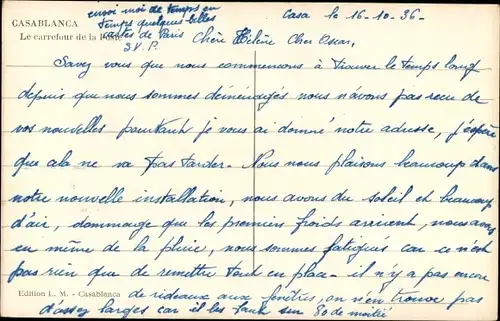 CASABLANCA
Le carrefour de la Poste
envoi moi de temps en
temps quelques belles
cartes de Paris
S.V.P.
Casa le 16-10-36-
Chère Hélène Cher Oscar,
Savez vous que nous commencons à trouver le temps long
depuis que nous sommes déménagés nous n'avons pas recu de
vos nouvelles pourtant je vous ai donné notre adresse, j'espère
que cela ne va pas tarder- Nous nous plaisons beaucoup dans
notre nouvelle installation, nous avons du soleil et beaucoup
d'air, dommage que les premiers froids arrivent, nous avons
eu même de la pluie, nous sommes fatigués car ce n'est
pas rien que de remettre tout en place- il n'y a pas encore
de rideaux aux fenêtres, on n'en trouve pas
d'assez larges car il les faut sur 80 de moitié
Edition L. M. - Casablanca